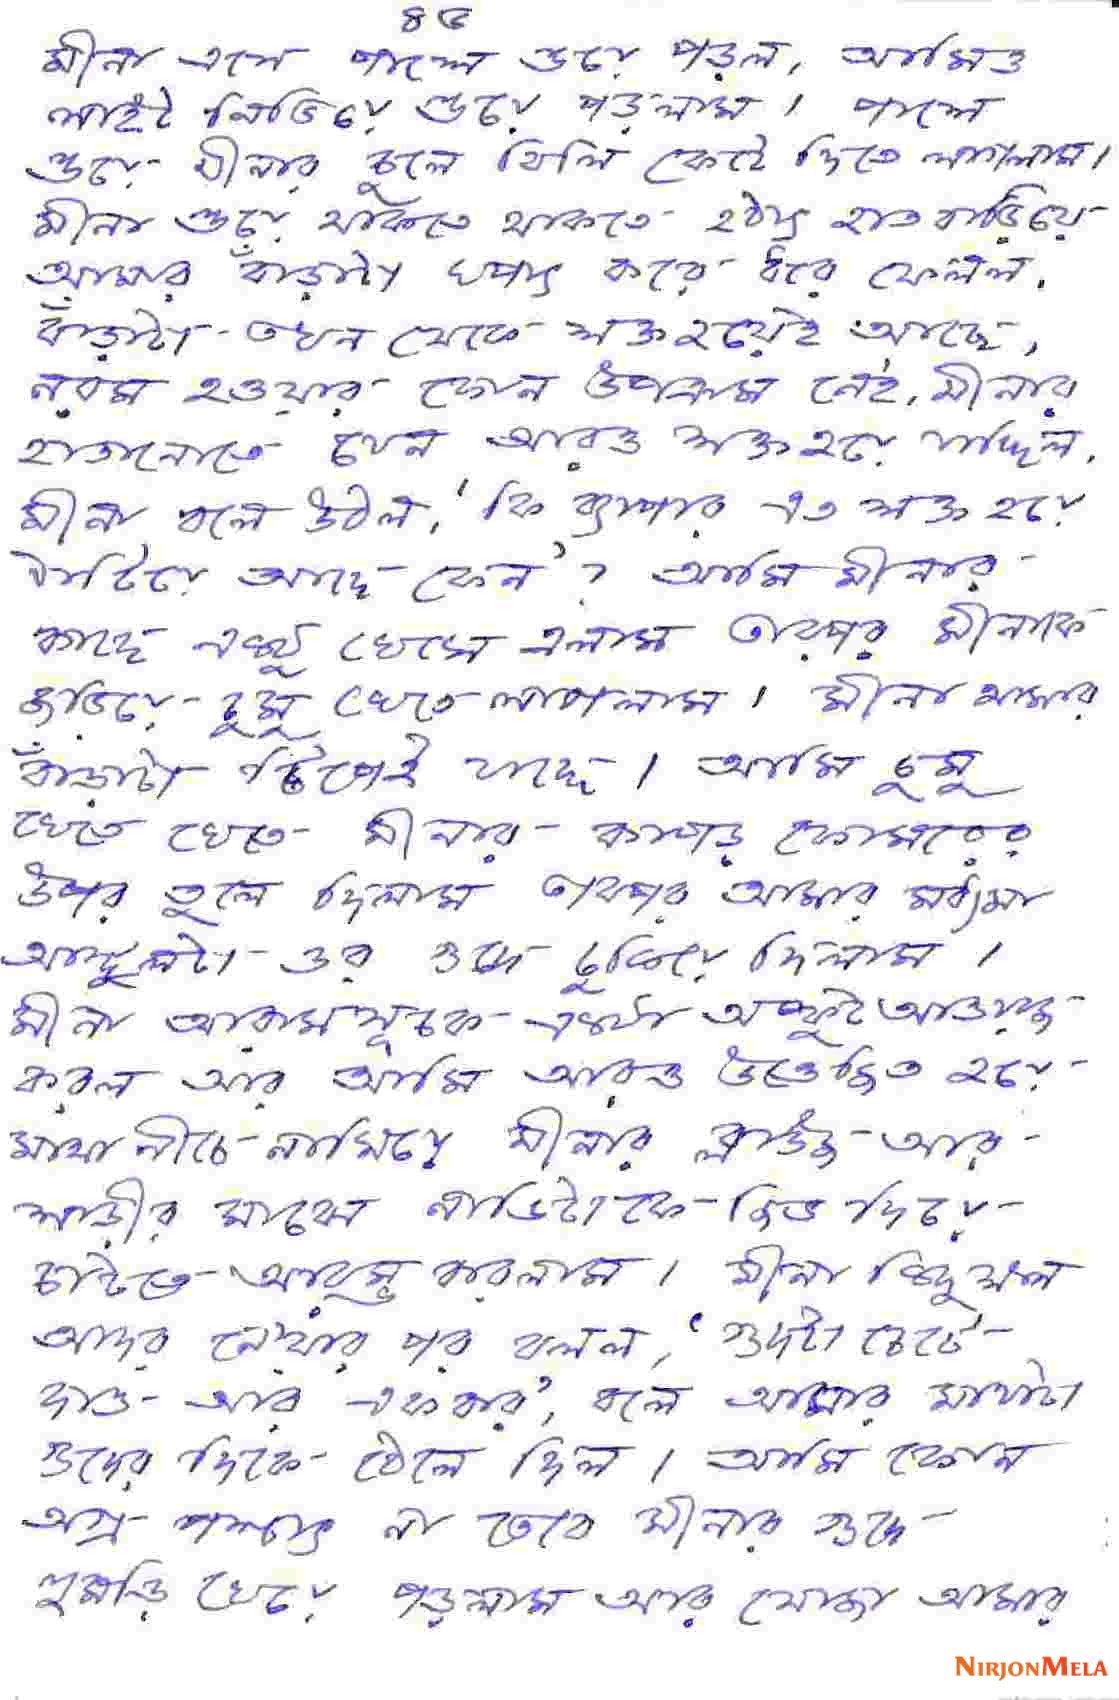 ৪৫
মীনা এসে পাশে শুয়ে পড়ল, আমিও
লাইট নিভিয়ে শুয়ে পড়লাম। পাশে
শুয়ে মীনার চুলে বিলি কেটে দিতে লাগলাম।
মীনা শুয়ে থাকতে থাকতে হঠাৎ হাত বাড়িয়ে
আমার বাঁড়াটা খপাৎ করে ধরে ফেলল,
বাঁড়াটা তখন থেকে শক্ত হয়েই আছে,
নরম হওয়ার কোন উপায় নেই, মীনার
হাতানোতে যেন আরও শক্ত হয়ে যাচ্ছিল,
মীনা বলে উঠল, 'কি ব্যাপার এত শক্ত হয়ে
আছে কেন'? আমি মীনার
কাছে একটু ঘেসে এলাম তারপর মীনাকে
জড়িয়ে চুমু খেতে লাগলাম। মীনা আমার
বাঁড়াটা টিপেই যাচ্ছে। আমি চুমু
খেতে খেতে মীনার কাপড় কোমরের
উপর তুলে দিলাম তারপর আমার মধ্যমা
আঙ্গুলটা ওর গুদে ঢুকিয়ে দিলাম।
মীনা আরামসূচক একটা অস্ফুট আওয়াজ
করল আর আমি আরও উত্তেজিত হয়ে
মাথা নীচে নামিয়ে মীনার ব্লাউজ আর
শাড়ীর মাঝের নাভিটাকে জিভ দিয়ে
চাটতে আরম্ভ করলাম। মীনা কিছুক্ষণ
আদর নেবার পর বলল, 'গুদটা চেটে
দাও আর একবার', বলে আমার মাথাটা
গুদের দিকে ঠেলে দিল। আমি কোন
অগ্র পশ্চাৎ না ভেবে মীনার গুদে
হুমড়ি খেয়ে পড়লাম আর সোজা আমার
NIRJONMELA